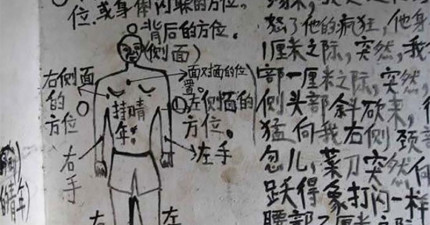 位,或身侧闪躲的方位。
背后的方位。
(侧面)
右侧面的方位
面对面的位置。
左侧面的方位。
封晴年。
右手
左手
右
左
的青年)
怒了他的疯狂,他身
1厘米之际,突然,我
部一厘米之际,突然,
侧头部斜砍来,
猛向我右侧颈
忽儿,菜刀突然何
跃得象打闪一样